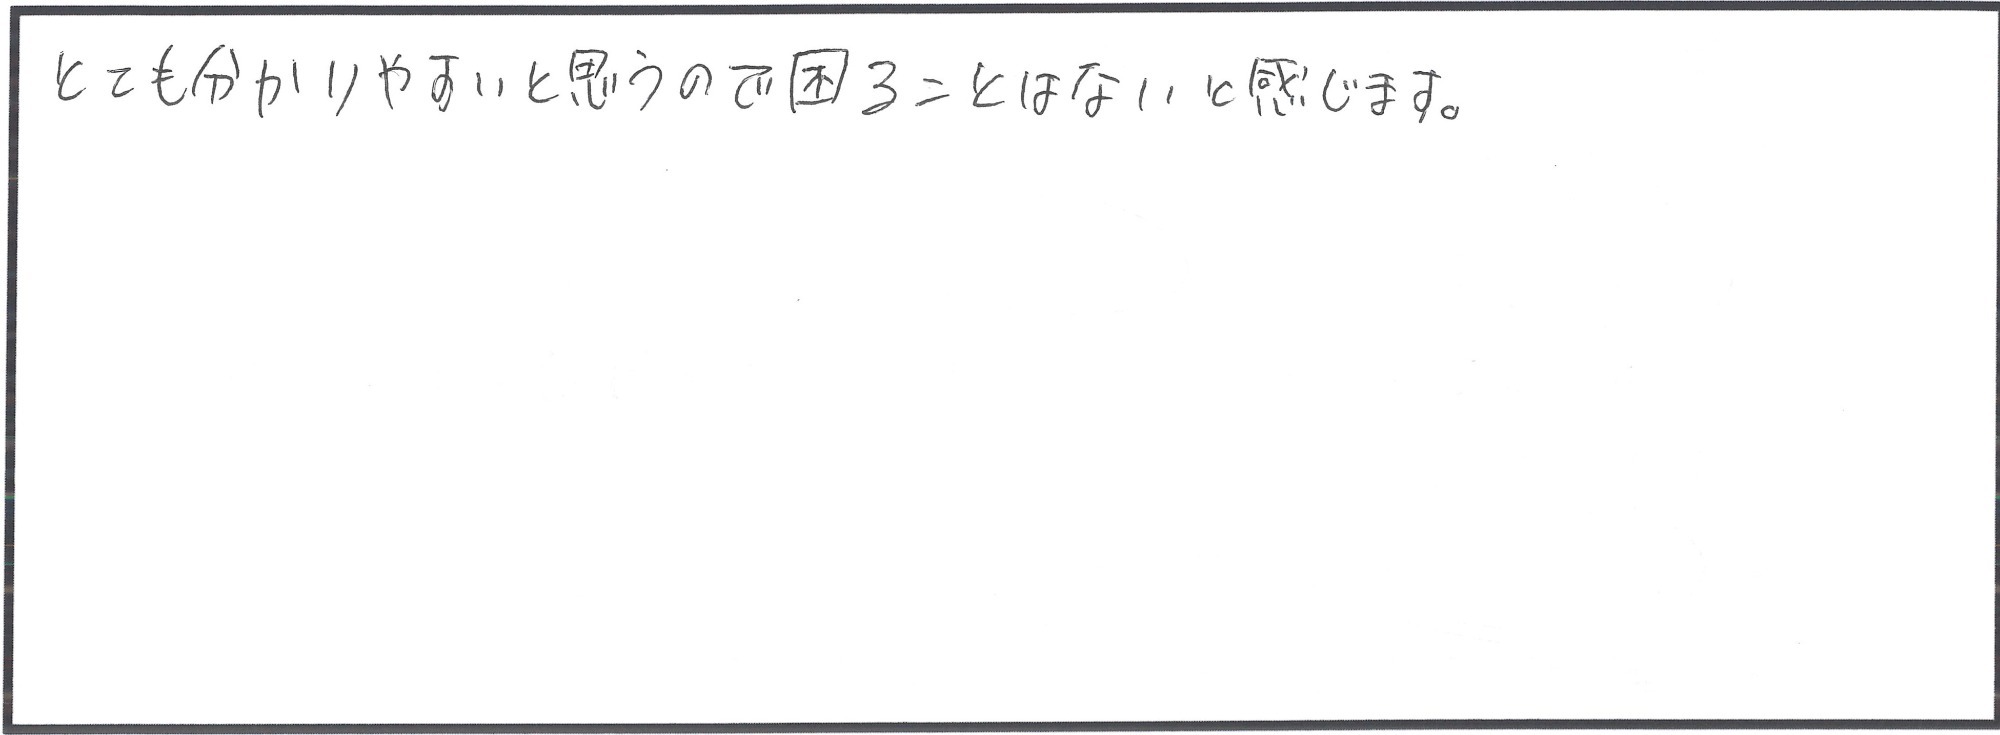 とても分かりやすいと思うので困ることはないと感じます。